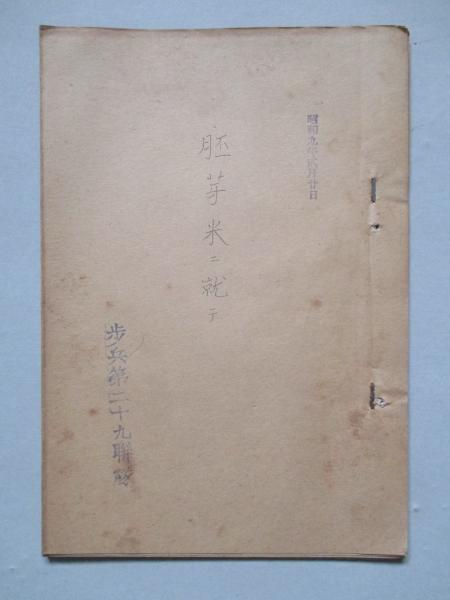 昭和九年弐月廿日
胚芽米ニ就テ
歩兵第二十九聯隊